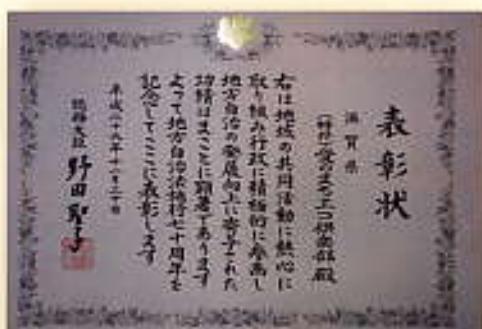 表彰状
滋賀県
(特非)愛のまちエコ倶楽部殿
右は地域の共同活動に熱心に
取り組み行政に積極的に参画し
地方自治の発展向上に寄与された
功績はまことに顕著であります
よって地方自治法施行七十周年を
記念してここに表彰します
平成二十九年十一月二十日
総務大臣 野田聖子